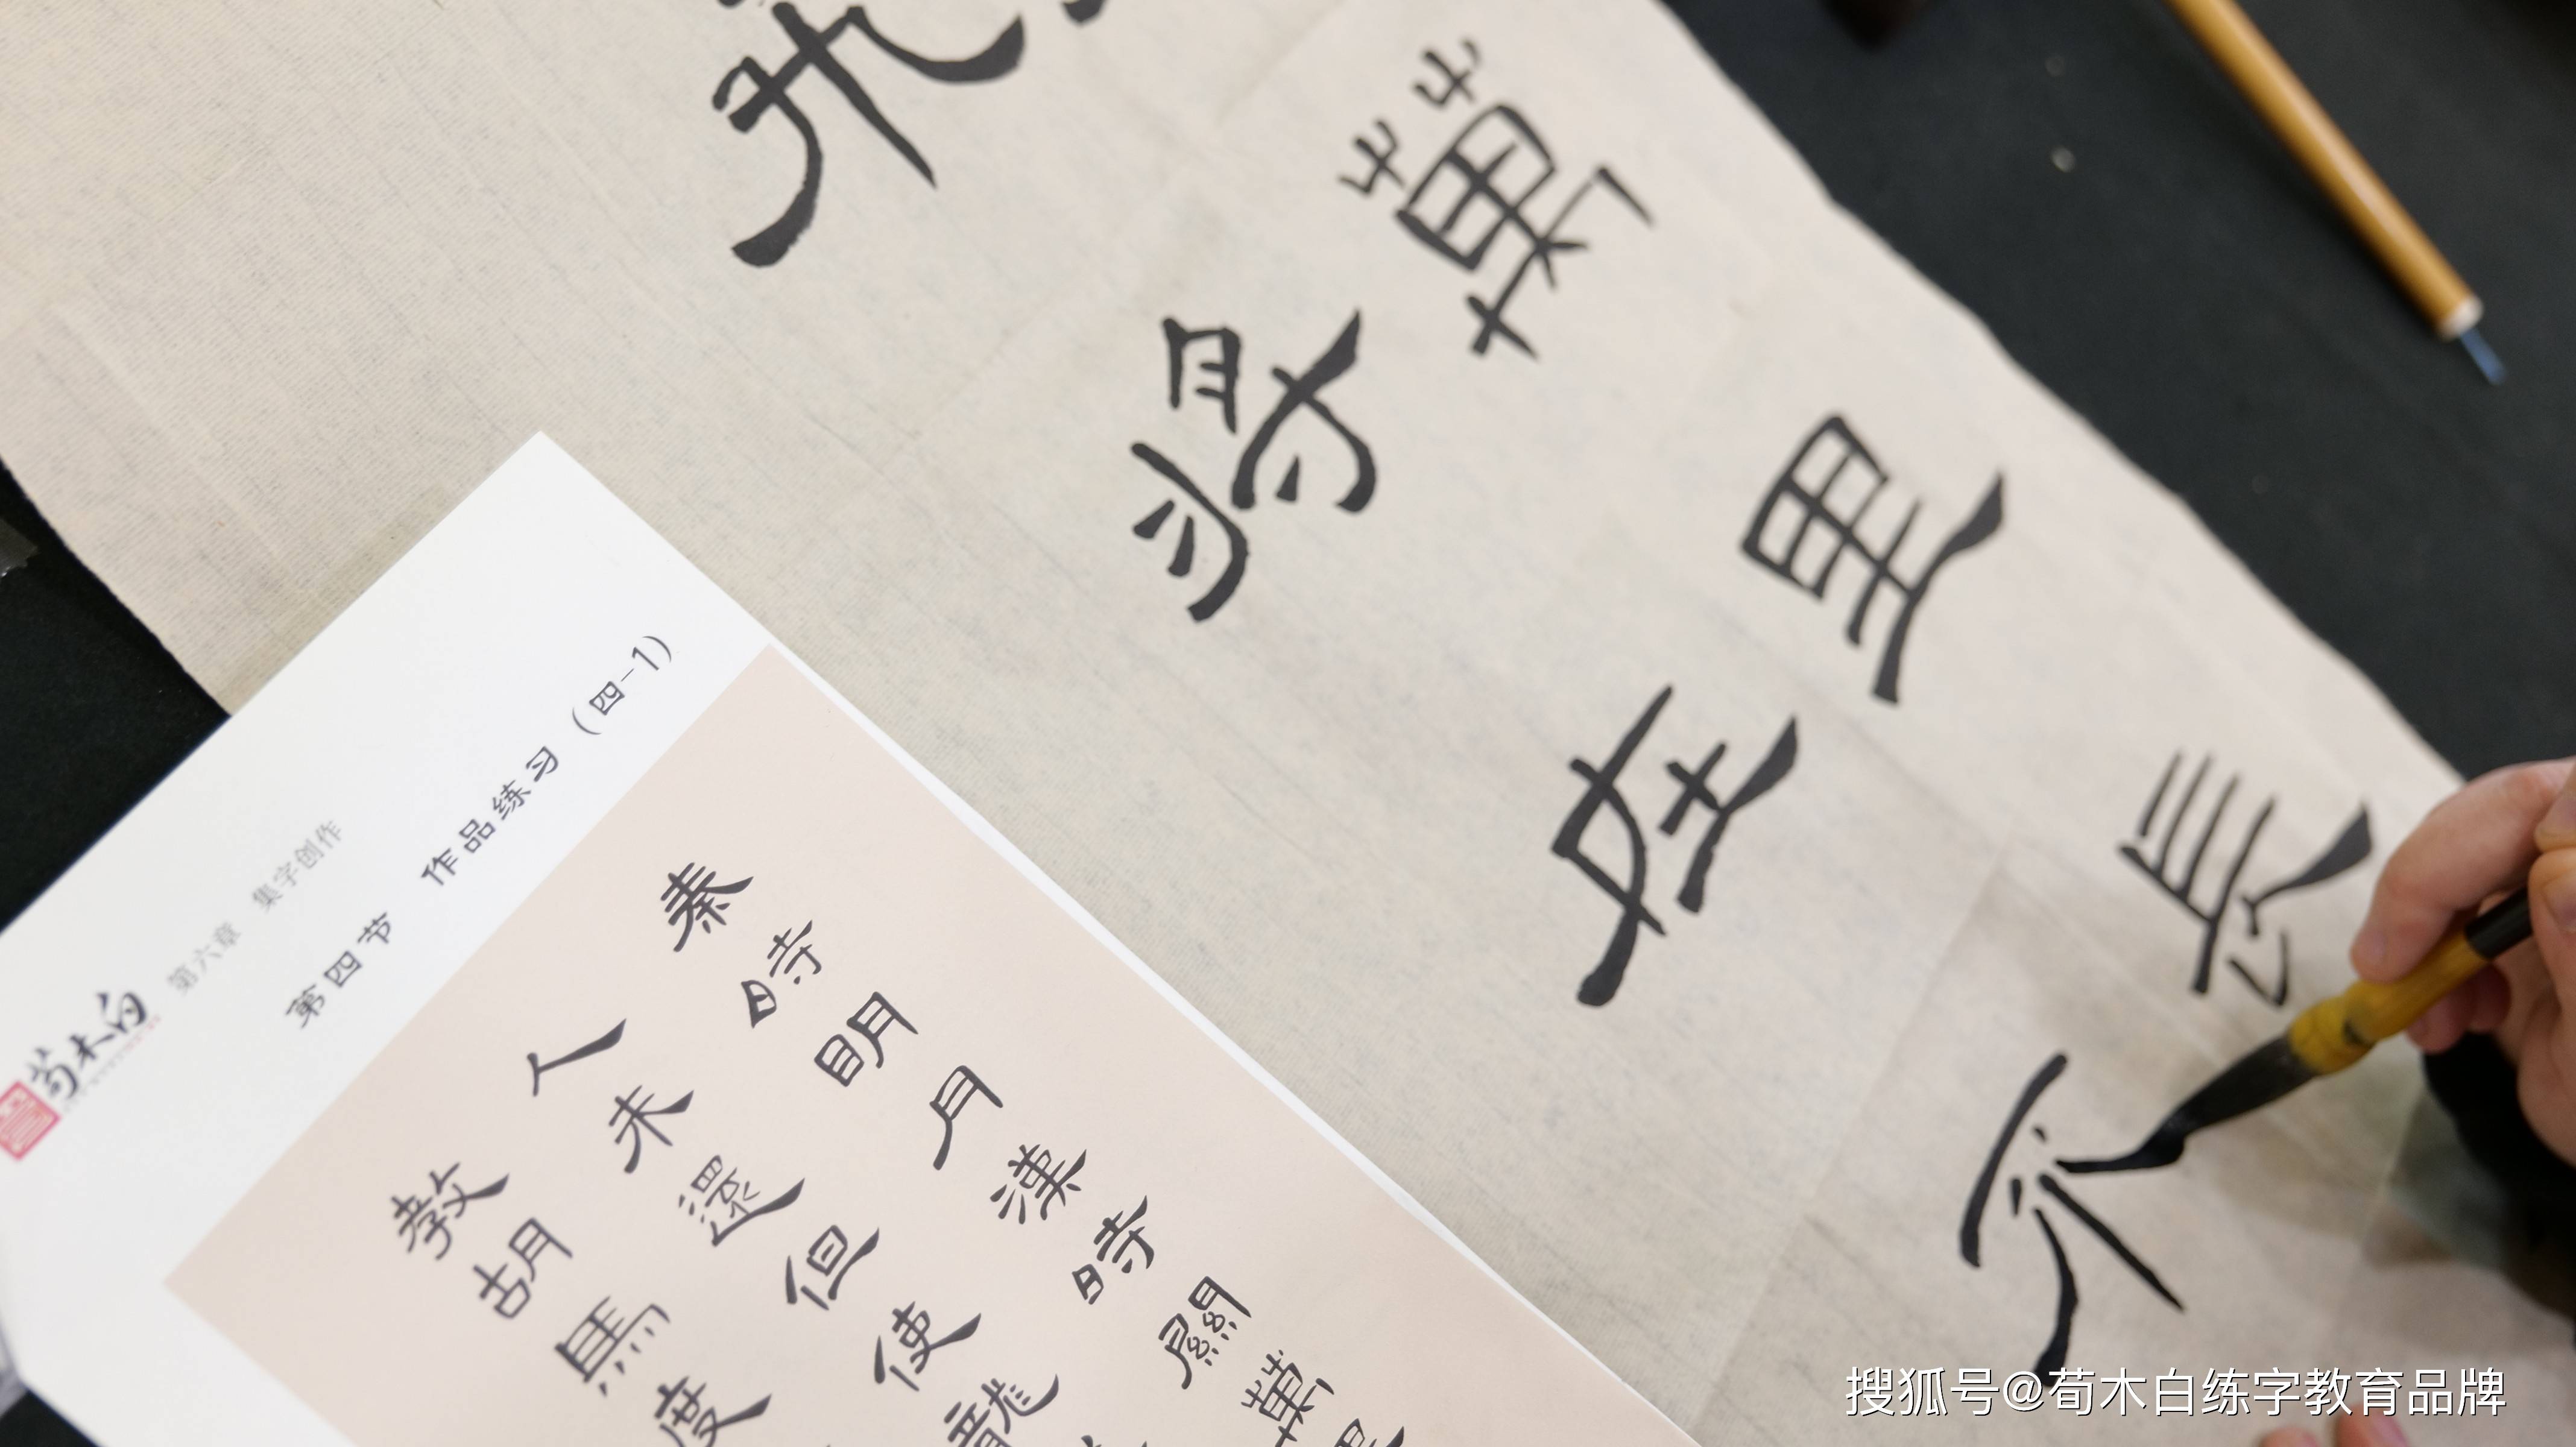 萬里長
飛將在不
荀木白
第六章 集字创作
第四节 作品练习（四-1）
秦時明月漢時關萬里
人未還但使龍
教胡馬度
搜狐号@荀木白练字教育品牌